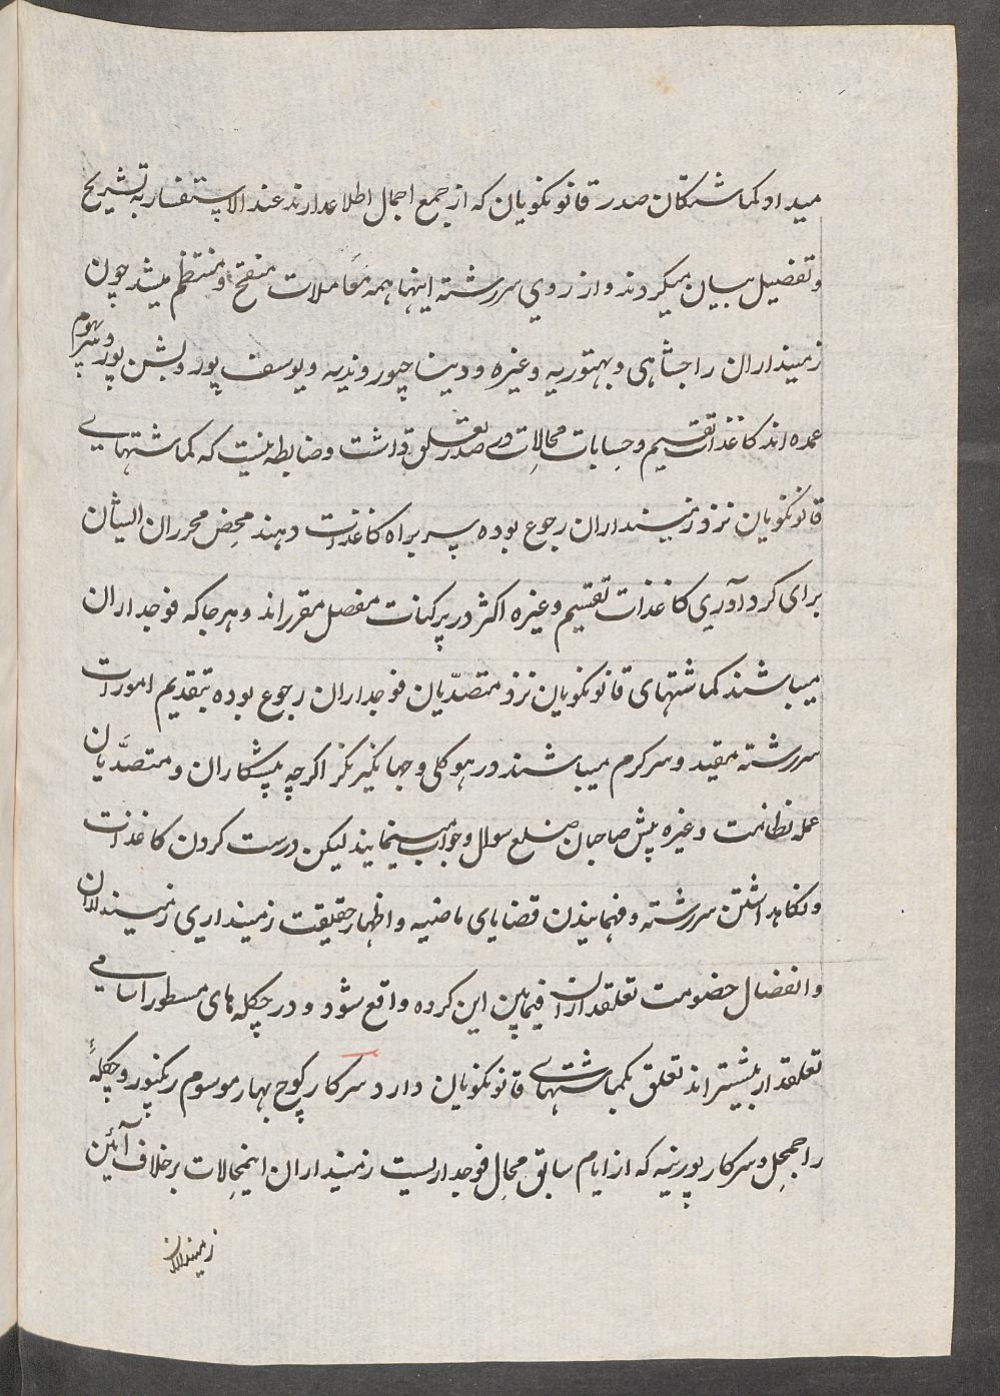 میداد کماشتکان صدر قانونکویان که از جمع اجمال اطلاعدارند عند الاستفسار به تشریح
و تفصیل بیان میکردند و از روی سررشته اینها همه معاملات منقح و منتظم میشد چون
زمینداران راجشاهی و بهتوریه وغیره و دیناجپور و ندیه و یوسف پور و بشن پور و بیربهوم
عمده اند کاغذات تقسیم و حسابات محالات در صدر تعلق داشت و ضابطه نیست که کماشتهای
قانونکویان نزد زمینداران رجوع بوده سربراه کاغذات دهند محض محرران ایشان
برای کردآوری کاغذات تقسیم وغیره اکثر در پرکنات مفصل مقرراند و هرجا که فوجداران
میباشند کماشتهای قانونکویان نزد متصدّیان فوجداران رجوع بوده بتقدیم امورات
سررشته مقید و سرکرم میباشند در هوکلی و جهانکیرنکر اکرچه پیشکاران و متصدّیان
عمله نظامت وغیره پیش صاحبان ضلع سوال و جواب مینمایند لیکن درست کردن کاغذات
و نکاهداشتن سررشته و فهمانیدن قضایای ماضیه و اظهار حقیقت زمینداری زمینداران
و انفصال خصومت تعلقداران فیمابین این کرده واقع شود و در چکله های مسطور اسامی
تعلقدار بیشتراند تعلق بکماشتهای قانونکویان دارد سرکار کوچ بهار موسوم رنکپور و چکلهٔ
راجمحل و سرکار پورنیه که از ایام سابق محال فوجداریست زمینداران اینمحالات برخلاف آئین
زمینداران